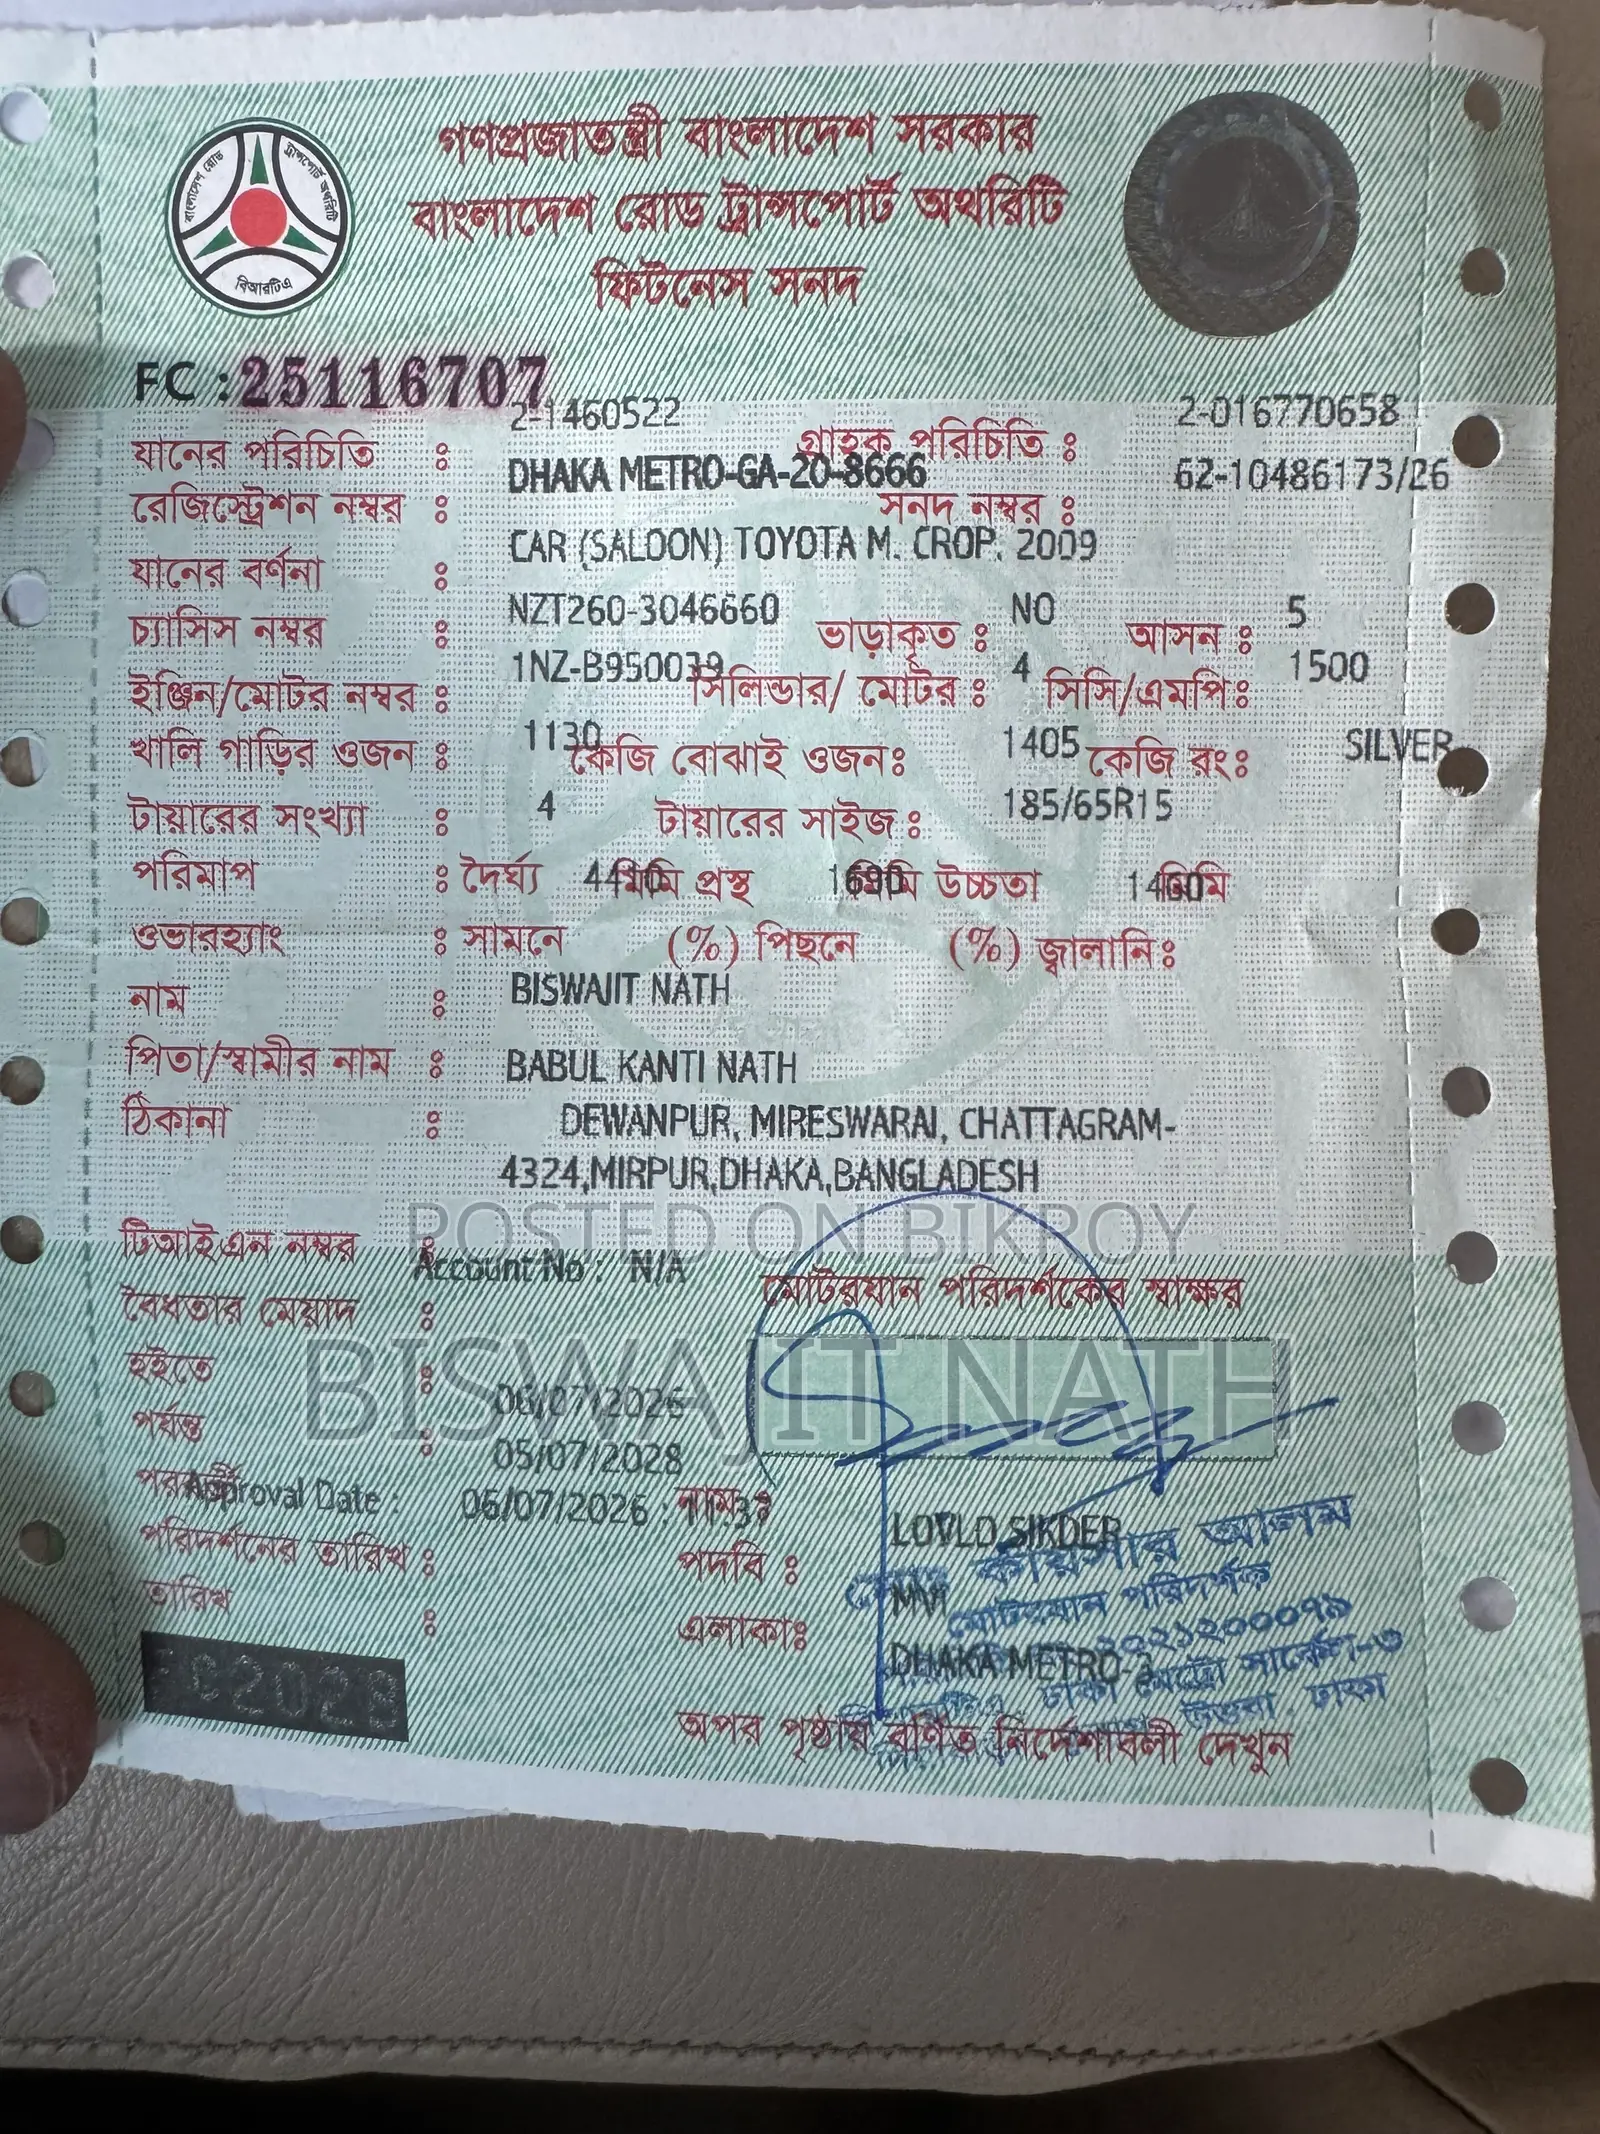 গণপ্রজাতন্ত্রী বাংলাদেশ সরকার
বাংলাদেশ রোড ট্রান্সপোর্ট অথরিটি
ফিটনেস সনদ
বাংলাদেশ রোড ট্রান্সপোর্ট অথরিটি
বিআরটিএ
FC : 25116707
যানের পরিচিতি : 2-1460522 গ্রাহক পরিচিতি : 2-016770658
রেজিস্ট্রেশন নম্বর : DHAKA METRO-GA-20-8666 সনদ নম্বর : 62-10486173/26
যানের বর্ণনা : CAR (SALOON) TOYOTA M. CROP. 2009
চ্যাসিস নম্বর : NZT260-3046660 ভাড়াকৃত : NO আসন : 5
ইঞ্জিন/মোটর নম্বর : 1NZ-B950039 সিলিন্ডার/ মোটর : 4 সিসি/এমপি: 1500
খালি গাড়ির ওজন : 1130 কেজি বোঝাই ওজন: 1405 কেজি রং: SILVER
টায়ারের সংখ্যা : 4 টায়ারের সাইজ : 185/65R15
পরিমাপ : দৈর্ঘ্য 4410 মিমি প্রস্থ 1690 মিমি উচ্চতা 1460 মিমি
ওভারহ্যাং : সামনে (%) পিছনে (%) জ্বালানি:
নাম : BISWAJIT NATH
পিতা/স্বামীর নাম : BABUL KANTI NATH
ঠিকানা : DEWANPUR, MIRESWARAI, CHATTAGRAM-
4324,MIRPUR,DHAKA,BANGLADESH
POSTED ON BIKROY
টিআইএন নম্বর :
Account No : N/A
মোটরযান পরিদর্শকের স্বাক্ষর
বৈধতার মেয়াদ :
BISWAJIT NATH
হইতে : 06/07/2026
পর্যন্ত : 05/07/2028
পরবর্তী
Approval Date : 06/07/2026 : 11:37
নাম : LOVLO SIKDER
পরিদর্শনের তারিখ :
পদবি : MVI
তারিখ :
এলাকা: DHAKA METRO-3
কায়সার আলম
মোটরযান পরিদর্শক
ঢাকা মেট্রো সার্কেল-৩
উত্তরা, ঢাকা
অপর পৃষ্ঠায় বর্ণিত নির্দেশাবলী দেখুন